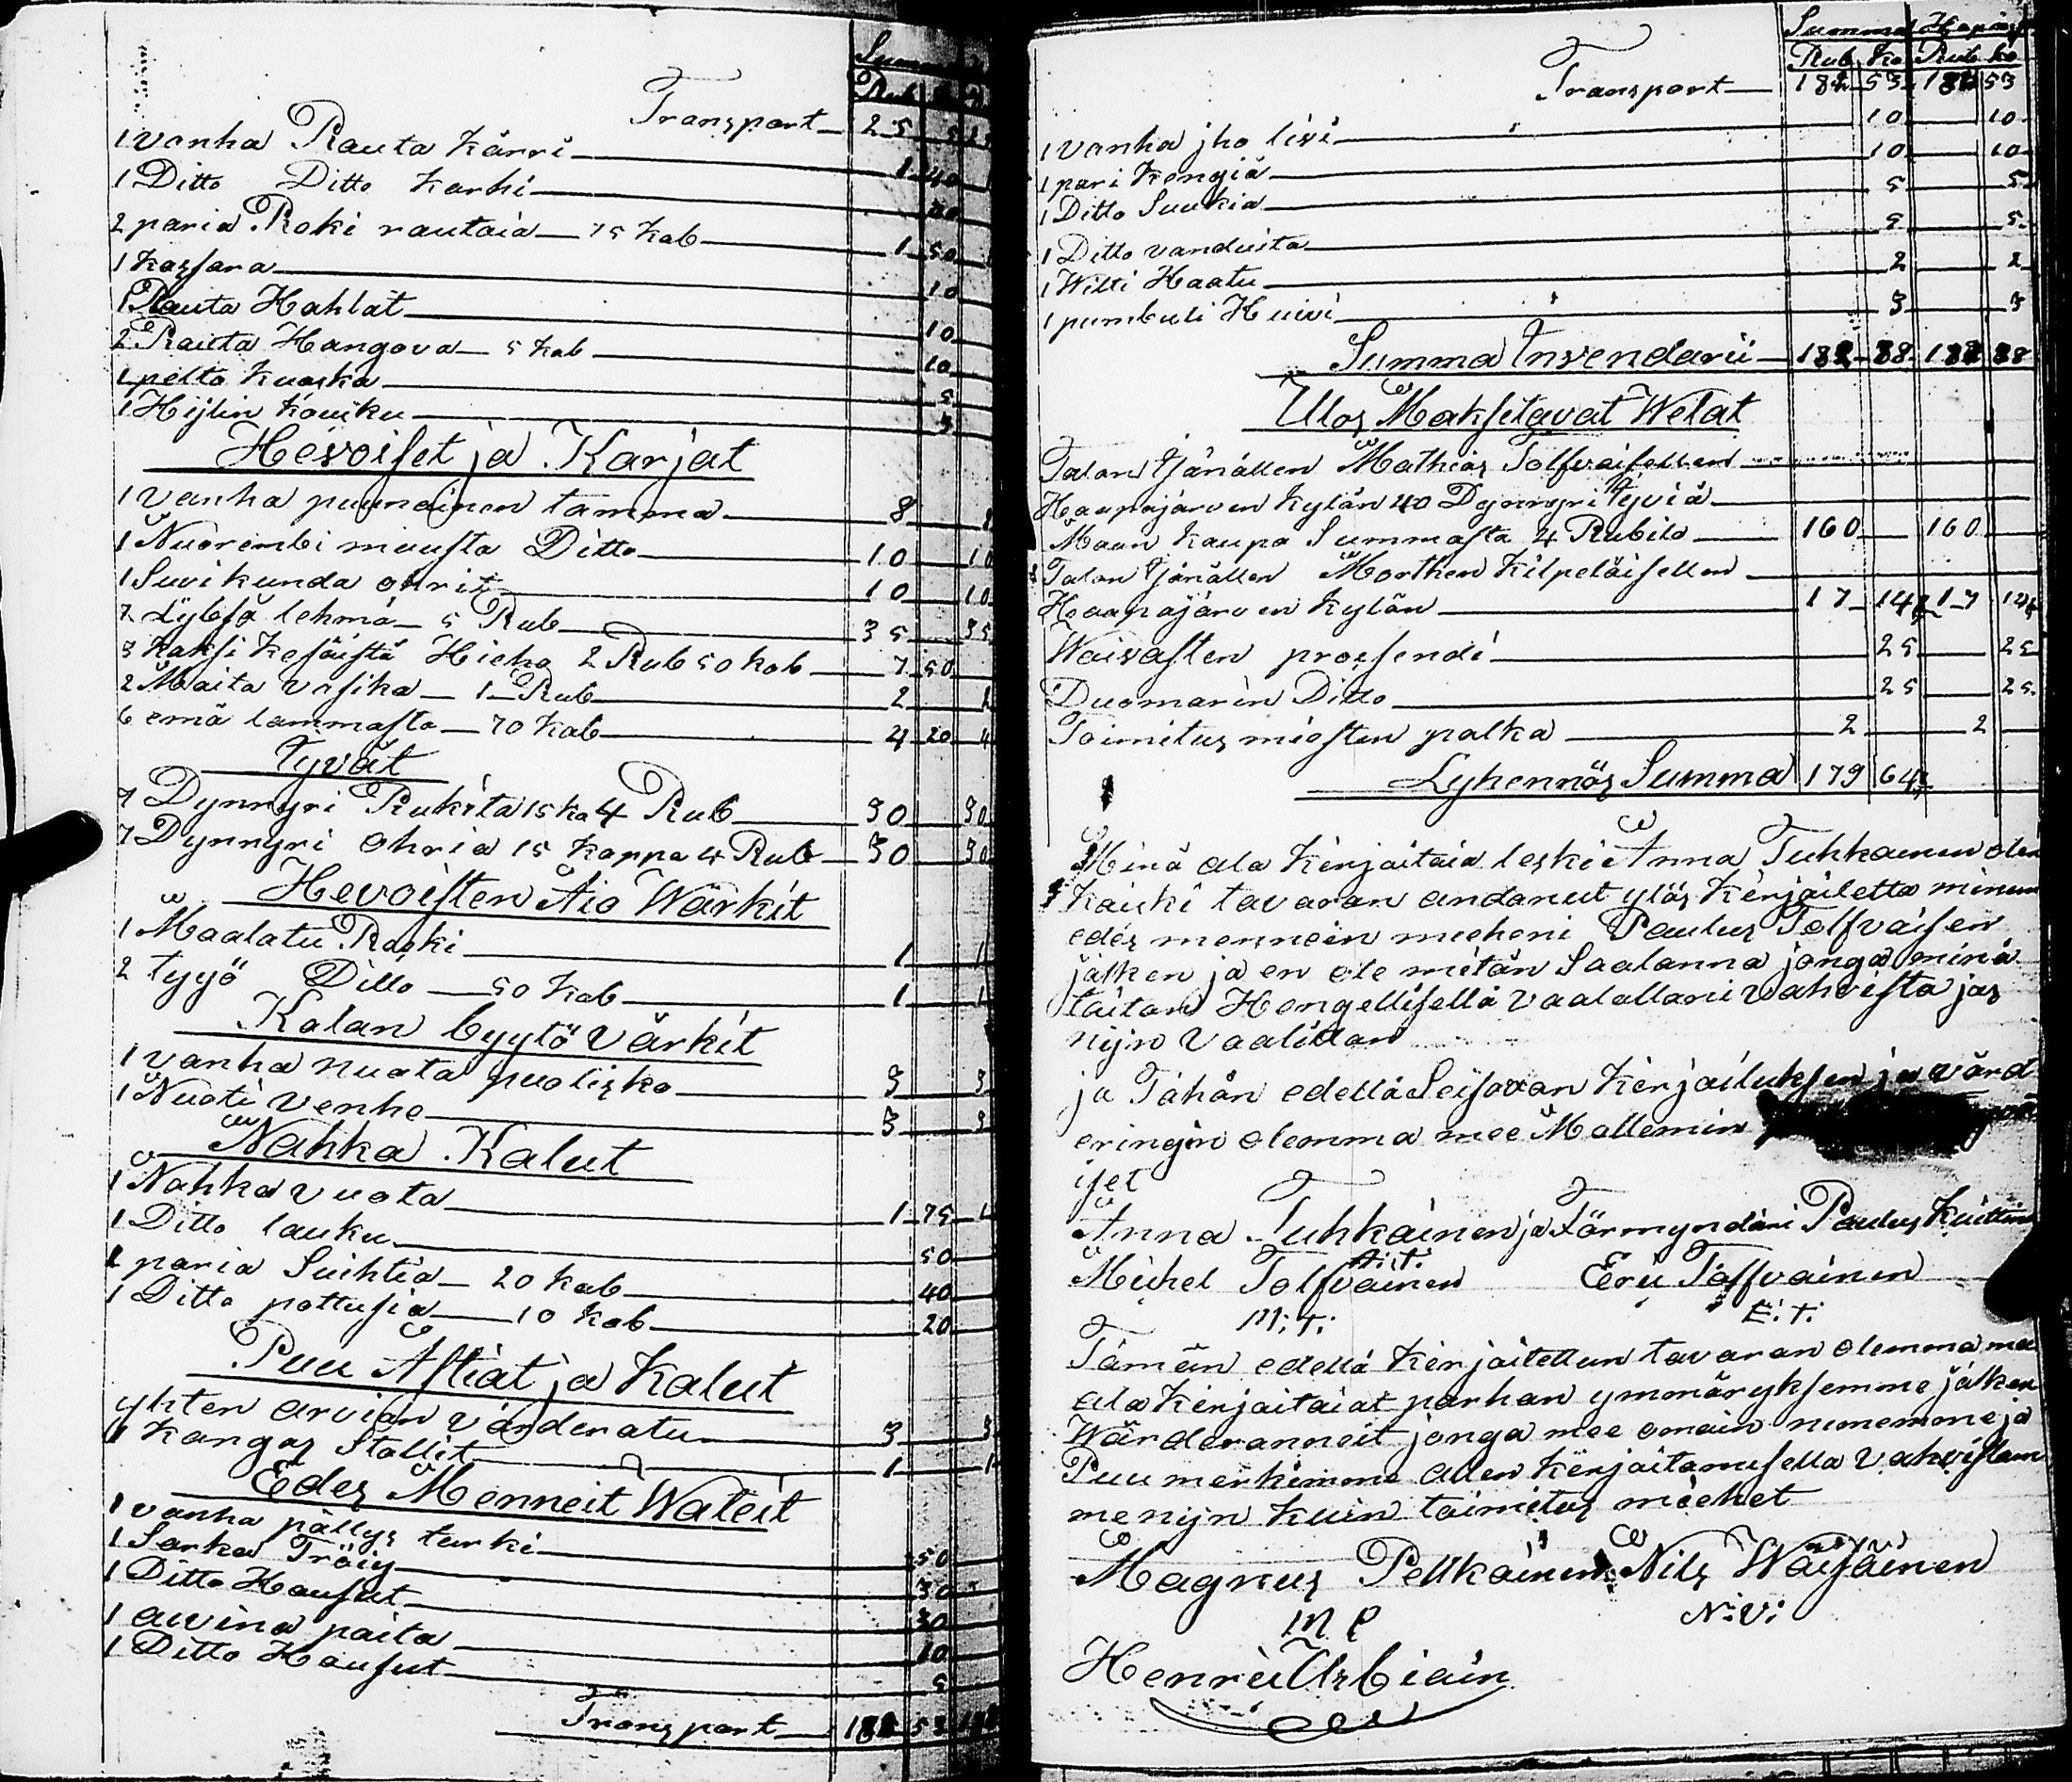 Summa
Rub
Transport 25
1 vanha Rauta Kärri 1 40
1 Ditto Ditto Karhi
2 paria Roki rautaia 75 kob 1 50
1 kassara 10
1 Rauta Hahlat 10
2 Rauta Hangova 5 kob 10
1 pelto Kuoska 5
1 Hijlin Kouku 3
Hevoiset ja Karjat
1 vanha puunainen tamma 8
1 Nuorembi muusta Ditto 10 10
1 Suvikunda ohrit 10 10
7 Lybsö lehmä 5 Rub 35 35
3 kaksi Kesäistä Hieho 2 Rub 50 kob 7 50
2 Maito vasika 1 Rub 2 2
6 emä lammasta 70 kob 4 20 4
tyvät
7 Dynnyri Rukita 15 ka 4 Rub 30 30
7 Dynnyri ohria 15 kappa 4 Rub 30 30
Hevoisten Aio Wärkit
1 Maalatu Roski 1 1
2 tyyö Ditto 50 kob 1 1
Kalan byytö värkit
1 vanha nuota puolisko 3 3
1 Nuoti venhe 3 3
Nahka Kalut
1 Nahka vuota 1 75 1
1 Ditto lauku 50
2 paria Suihtia 20 kob 40
1 Ditto pottusia 10 kob 20
Puu Astiat ja Kalut
yhten arvion värderatu 3 3
1 Kangas Stollit 1 1
Edes Menneit Wateit
1 vanha pällys turki 50
1 Sarka Tröiy 30
1 Ditto Housut 30
1 aivina paita 10
1 Ditto Housut 5
Transport 182 53
Summa
Rub ko Rub ko
Transport 182 53 182 53
1 vanha jho livi 10 10
1 pari Kengiä 10 10
1 Ditto Suukia 5 5
1 Ditto vanduita 5 5
1 Wilti Haatu 2 2
1 pumbuli Huivi 3 3
Summa Invendarii 182 88 182 88
Ulos Maksetavat Welat
Talon Jsänällen Mathias Tolfvaisellen
Haapajärven Kylän 40 Dynnyri tyviä
Maan Kaupa Summasta 4 Rubilo 160 160
Talon Jsänällen Morthen Kilpeläisellen
Haapajärven Kylän 17 14 17 14
Waivasten prosendi 25 25
Duomarin Ditto 25 25
Toimitus miesten palka 2 2
Lyhennös Summa 179 64
Minä ala Kirjoitaia leski Anna Tuhkainen olen
kaiki tavaran andanut ylös Kirjoiletta minun
edes mennein mieheni Paulus Tolfvaisen
jälken ja en ole mitän Saalanna jonga minä
taitan Hengellisellä vaalallani vahvista jos
nijn vaalittan
ja Tähän edellä Seisovan Kirjoituksen ja värd
eringin olemma mee Mollemin
iset
Anna Tuhkainen ja Förmyndäri Paulus Kuittin
A:T:
Michel Tolfvainen Erii Tolfvainen
M:T: E:T:
Tämän edellä Kirjoitellun tavaran olemma mee
ala Kirjoitaiat parhan ymmäryksemme jälken
Wärderanneit jonga mee omain nimemme ja
Puumerkimme allen Kirjoitamisella vahvistam
me nijn Kuin toimitus miehet
Magnus Pellkäinen Nils Wäisäinen
M P N:V:
Henric Usbiain